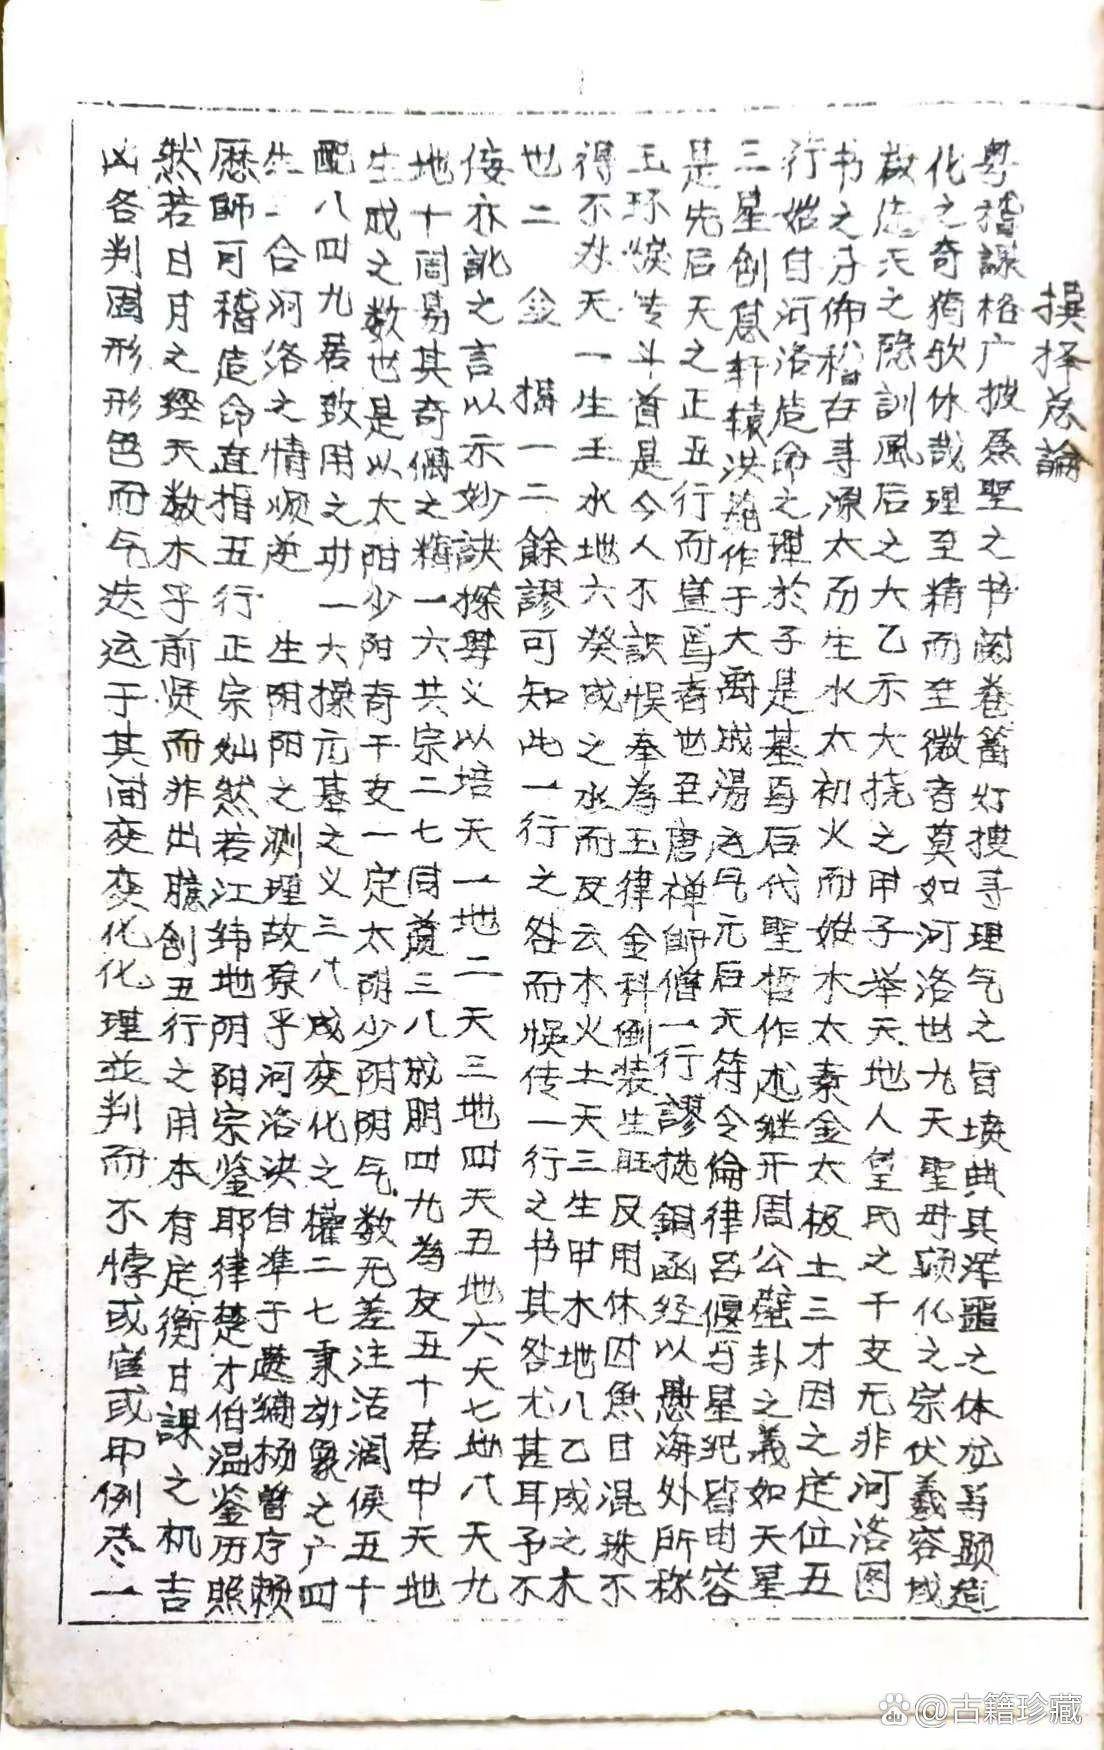 撰择总論
粤稽謀格广披羲聖之书阅卷篝灯搜寻理气之旨墳典其渾噩之体龙与题造
化之奇猗欤休哉理至精而至微者莫如河洛也九天聖母顾化之宗伏羲容成
啟造天之隐訓風后之大乙示大挠之甲子举天地人皇氏之干支无非河洛图
书之分佈稽古寻源太而生水太初火而始木太素金太极土三才因之定位五
行始自河洛造命之理於子是基焉后代聖哲作述継开周公壁卦之義如天星
三星創息轩辕洪范作于大禹成湯运气元后天符令倫律吕偃与星纪皆由容
是先后天之正五行而宣焉者也丑唐禅師僧一行謬挑銅函经以愚海外所称
玉环俟传斗首是今人不識悞奉為玉律金科倒装生旺反用休囚魚目混珠不
得不然天一生壬水地六癸成之水而反云木火土天三生甲木地八乙成之木
也二 金 撮一二餘謬可知此一行之咎而悞传一行之书其咎尤甚耳予不
倿亦訛之言以示妙訣探奥义以培天一地二天三地四天五地六天七地八天九
地十周易其奇偶之精一六共宗二七同道三八成朋四九為友五十居中天地
生成之数也是以太阳少阳奇干支一定太阴少阴阴气数无差注活润俟五十
配八四九居致用之功一六操元基之义三八成变化之權二七秉动象之广四
生 合河洛之情顺逆 生阴阳之测理故系乎河洛决自準于趨繡杨曾序赖
歴師可稽造命直指五行正宗灿然若江纬地阴阳宗鉴耶律楚才伯温鉴历照
然若日月之經天数木乎前贤而非出臆創五行之用本有定衡日課之机吉
凶各判固形形色而气迭运于其间变变化化理並判而不悖或官或印例尽一
@古籍珍藏